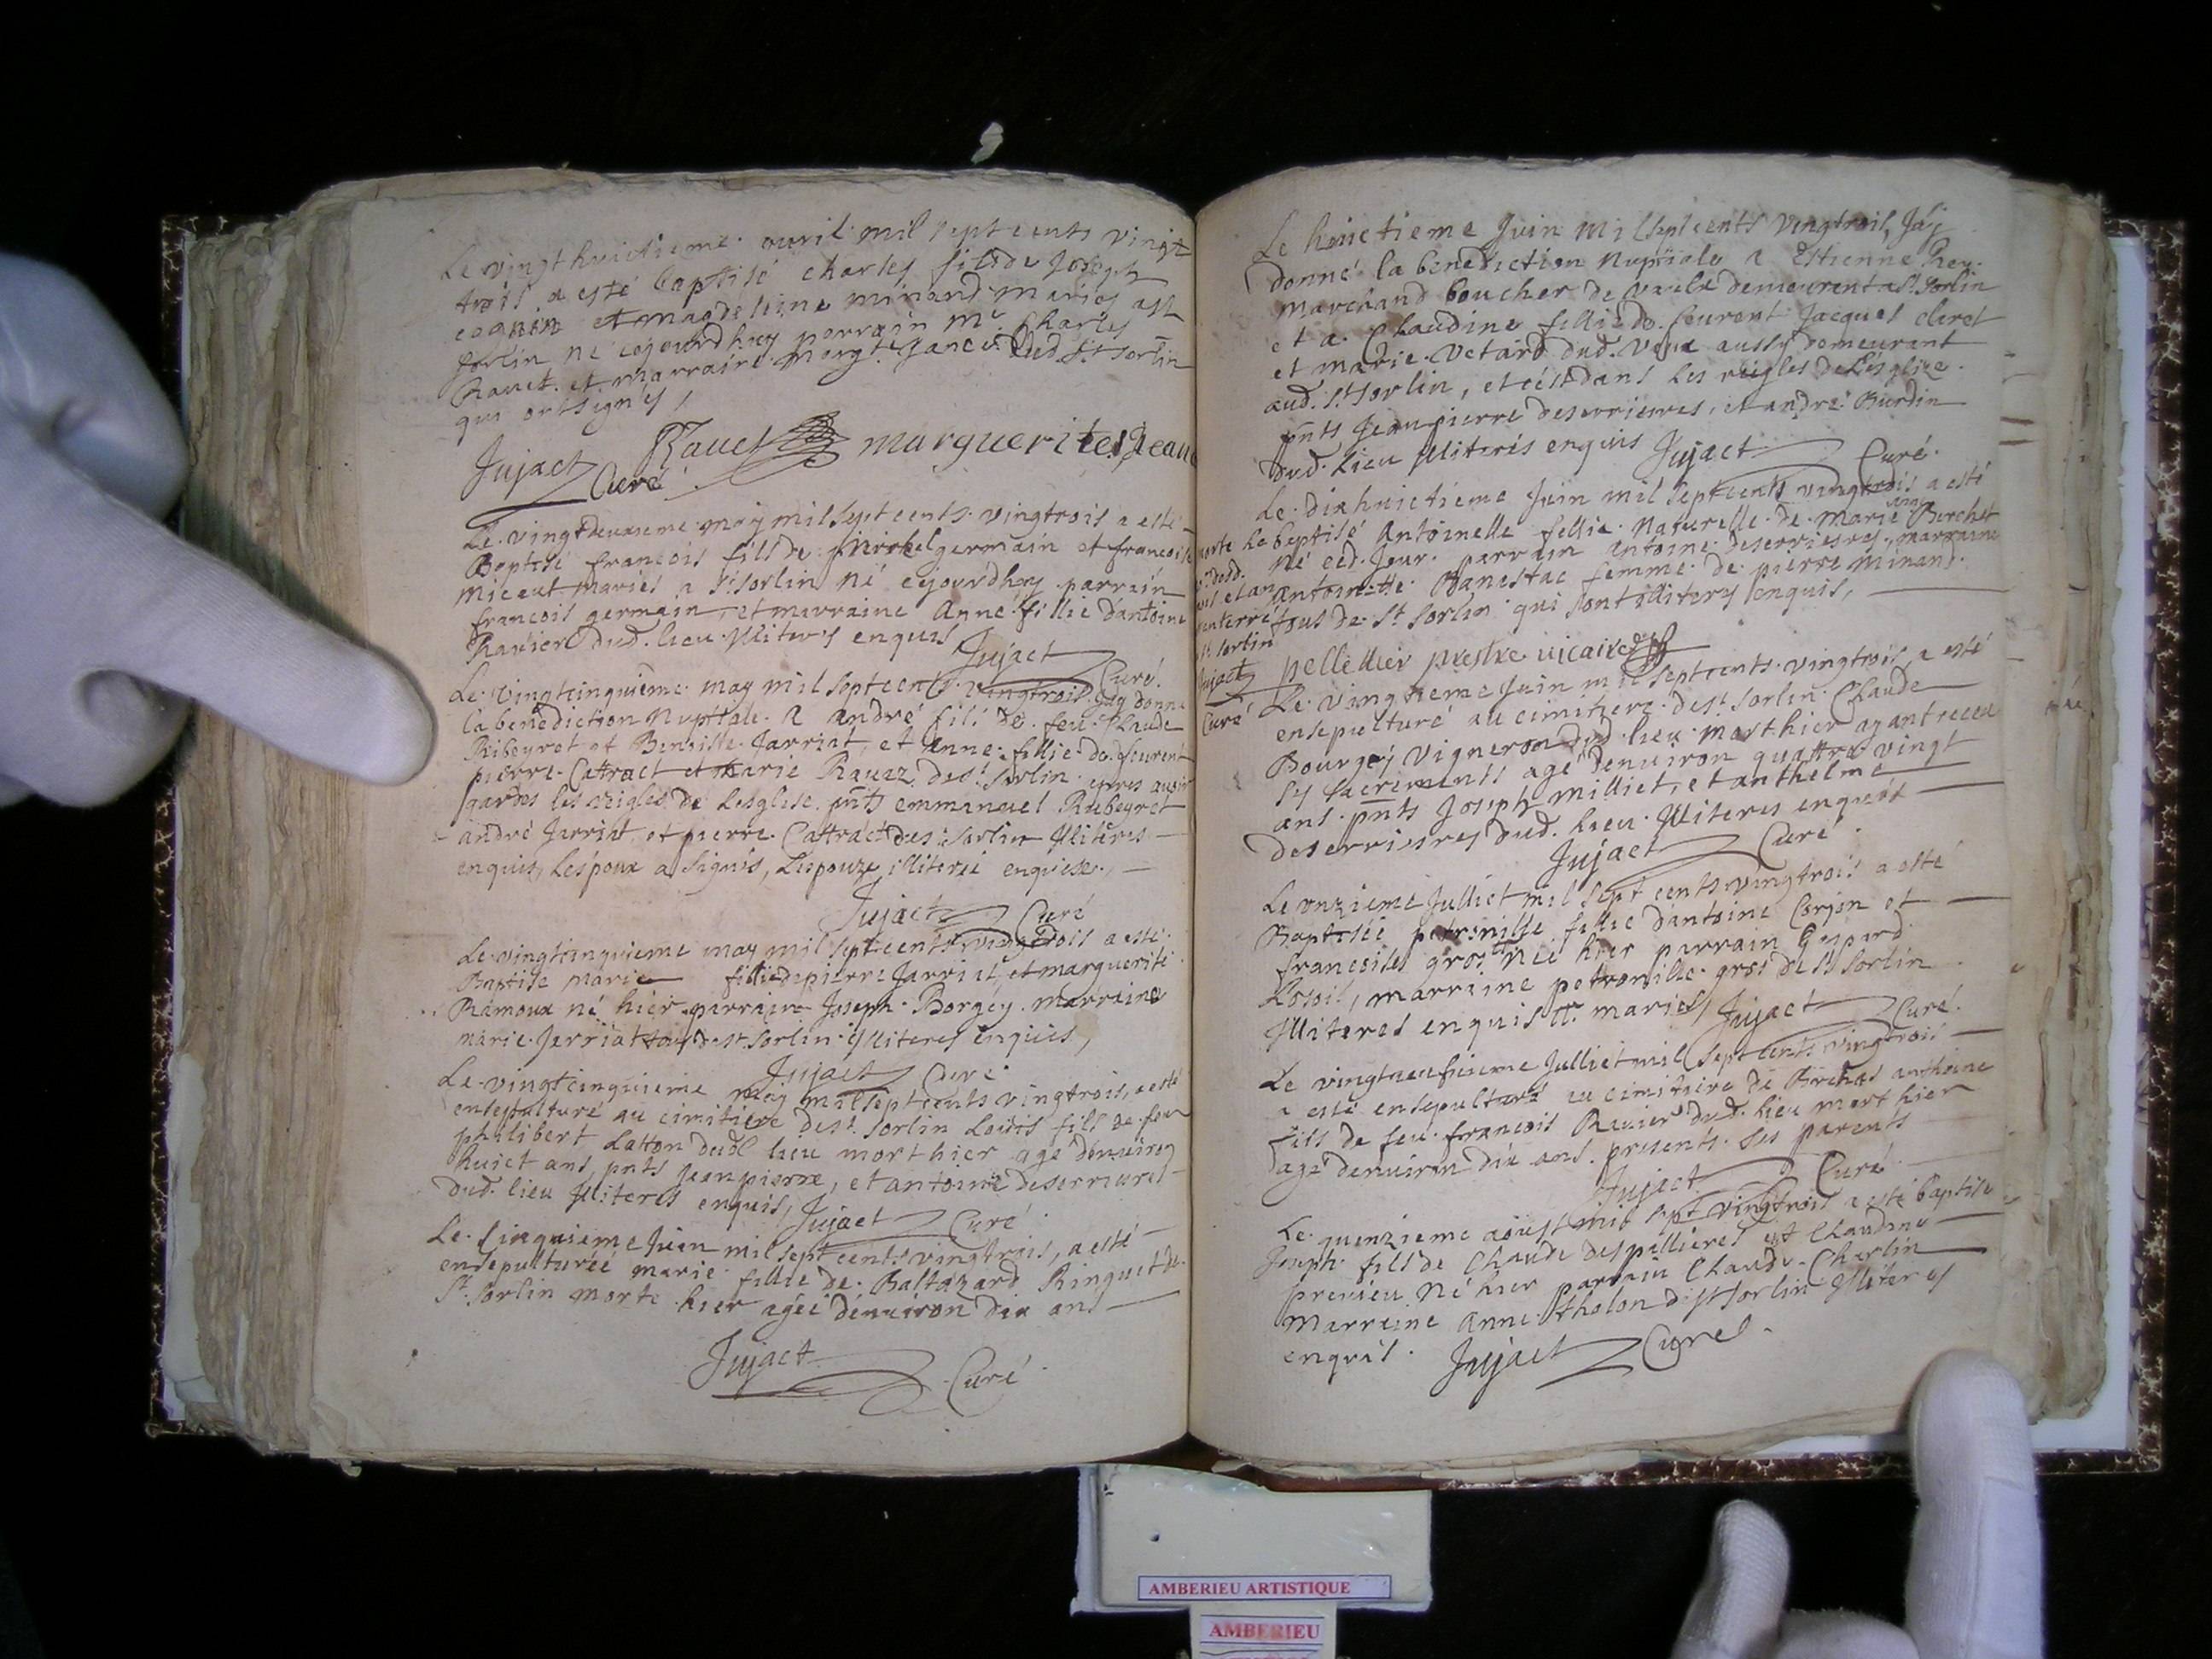 Le vingt huictieme avril mil sept cents vingt
trois a esté baptisé charles fils de Joseph
et magdeleine minand mariés a st
sorlin né cejourdhuy parrain mr. Charles
Rauet et marraine margte. Janet dud. st sorlin
qui ont signés,
Jujact Curé Rauet marguerite Jeane
Le vingtdeuxieme may mil sept cents vingtrois a esté
Baptisé francois fils de michel germain et francoise
micaut mariés a st sorlin né cejourdhuy parrain
francois germain, et marraine Anne fillie dantoine
Rauier dud. lieu illiterés enquis
Jujact Curé.
Le vingtcinquieme may mil septcents vingtrois Jay donné
la benediction nuptiale a andré fils de feu Claude
Ribeyret et Benoiste Jarriat, et anne fillie de deffunt
pierre Cattract et marie Rauaz de st sorlin apres auoir
gardes les reigles de Lesglise pnts emmanuel Ribeyret
andré Jarriat et pierre Cattract de st sorlin illiteres
enquis, Lespoux a signés, Lespouze illiteree enquise.,
Jujact Curé
Le vingtcinquieme may mil septcents vingtrois a esté
Baptise marie fillie de pierre Jarriat et marguerite
Ramoux né hier parrain Joseph Borgey marraine
marie Jarriat tous de st. sorlin illiteres enquis,
Jujact Curé
Le vingtcinquieme may mil septcents vingtrois, a esté
ensepulturé au cimitiere de st. sorlin Louis fils de feu
philibert Latton dud. lieu mort hier agé denuiron
huict ans, pnts Jeanpierre, et antoine deserrieres
dud. lieu illiteres enquis, Jujact Curé
Le Cinquieme Juin mil sept cents vingtrois, a esté
ensepulturéé marie fillie de Baltazard Ringuet de
St. sorlin morte hier agéé denuiron dix ans
Jujact Curé
Le huictieme Juin mil sept cents vingtrois, Jay
donné la benediction nuptiale a Estienne Rey
marchand boucher de vaulx demeurent a st. sorlin
et a Claudine fillie de feu Jacques claret
et marie Vetard dud. Vaux aussy demeurant
aud. st sorlin, et cest dans les reigles de Lesglize.
pnts Jean pierre deserrieres, et andré Burdin
dud. lieu illiterés enquis Jujact Curé.
Le dixhuictieme Juin mil septcents vingtrois a esté
baptisé Antoinette fillie naturelle de marie Berchet
né ced. Jour. parrain antoine deserrieres, marraine
antoinette femme de pierre minand.
tous de st sorlin qui sont illiterés enquis,
pellettier prestre uicaire
morte Le
et a
enterré
st sorlin
Jujact
Curé
Le vingtieme Juin mil septcents vingtrois, a esté
ensepulturé au cimitiere de st sorlin Claude
Bourgey vigneron dud. lieu mort hier ayant receu
sy sacrements agé denuiron quattre vingt
ans. pnts Joseph milliet, et anthelme
deserrieres dud. lieu illiteres enquis
Jujact Curé
Le unzieme Julliet mil sept cents vingtrois a esté
Baptisée petronille fillie dantoine Corjon et
francoise gros née hier parrain Gaspard
Losoil, marraine petronille gros de st sorlin
illiteres enquis mariés, Jujact Curé.
Le vingtneufuieme Julliet mil sept cents vingtrois
a esté ensepulturé au cimitiere de Breches anthoine
fils de feu francois Rauier dud. lieu mort hier
agé denuiron dix ans. presents ses parents
Jujact Curé
Le quenzieme aoust mil sept vingtrois a esté baptise
Joseph fils de Claude despillieres et Claudine
preuieu né hier parrain Claude Charlin
marraine Anne Ptholon de st sorlin illiteres
enquis. Jujact Curé.
AMBERIEU ARTISTIQUE
AMBERIEU